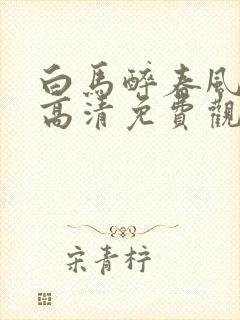 白馬醉春風
高清免費觀
宋青柠